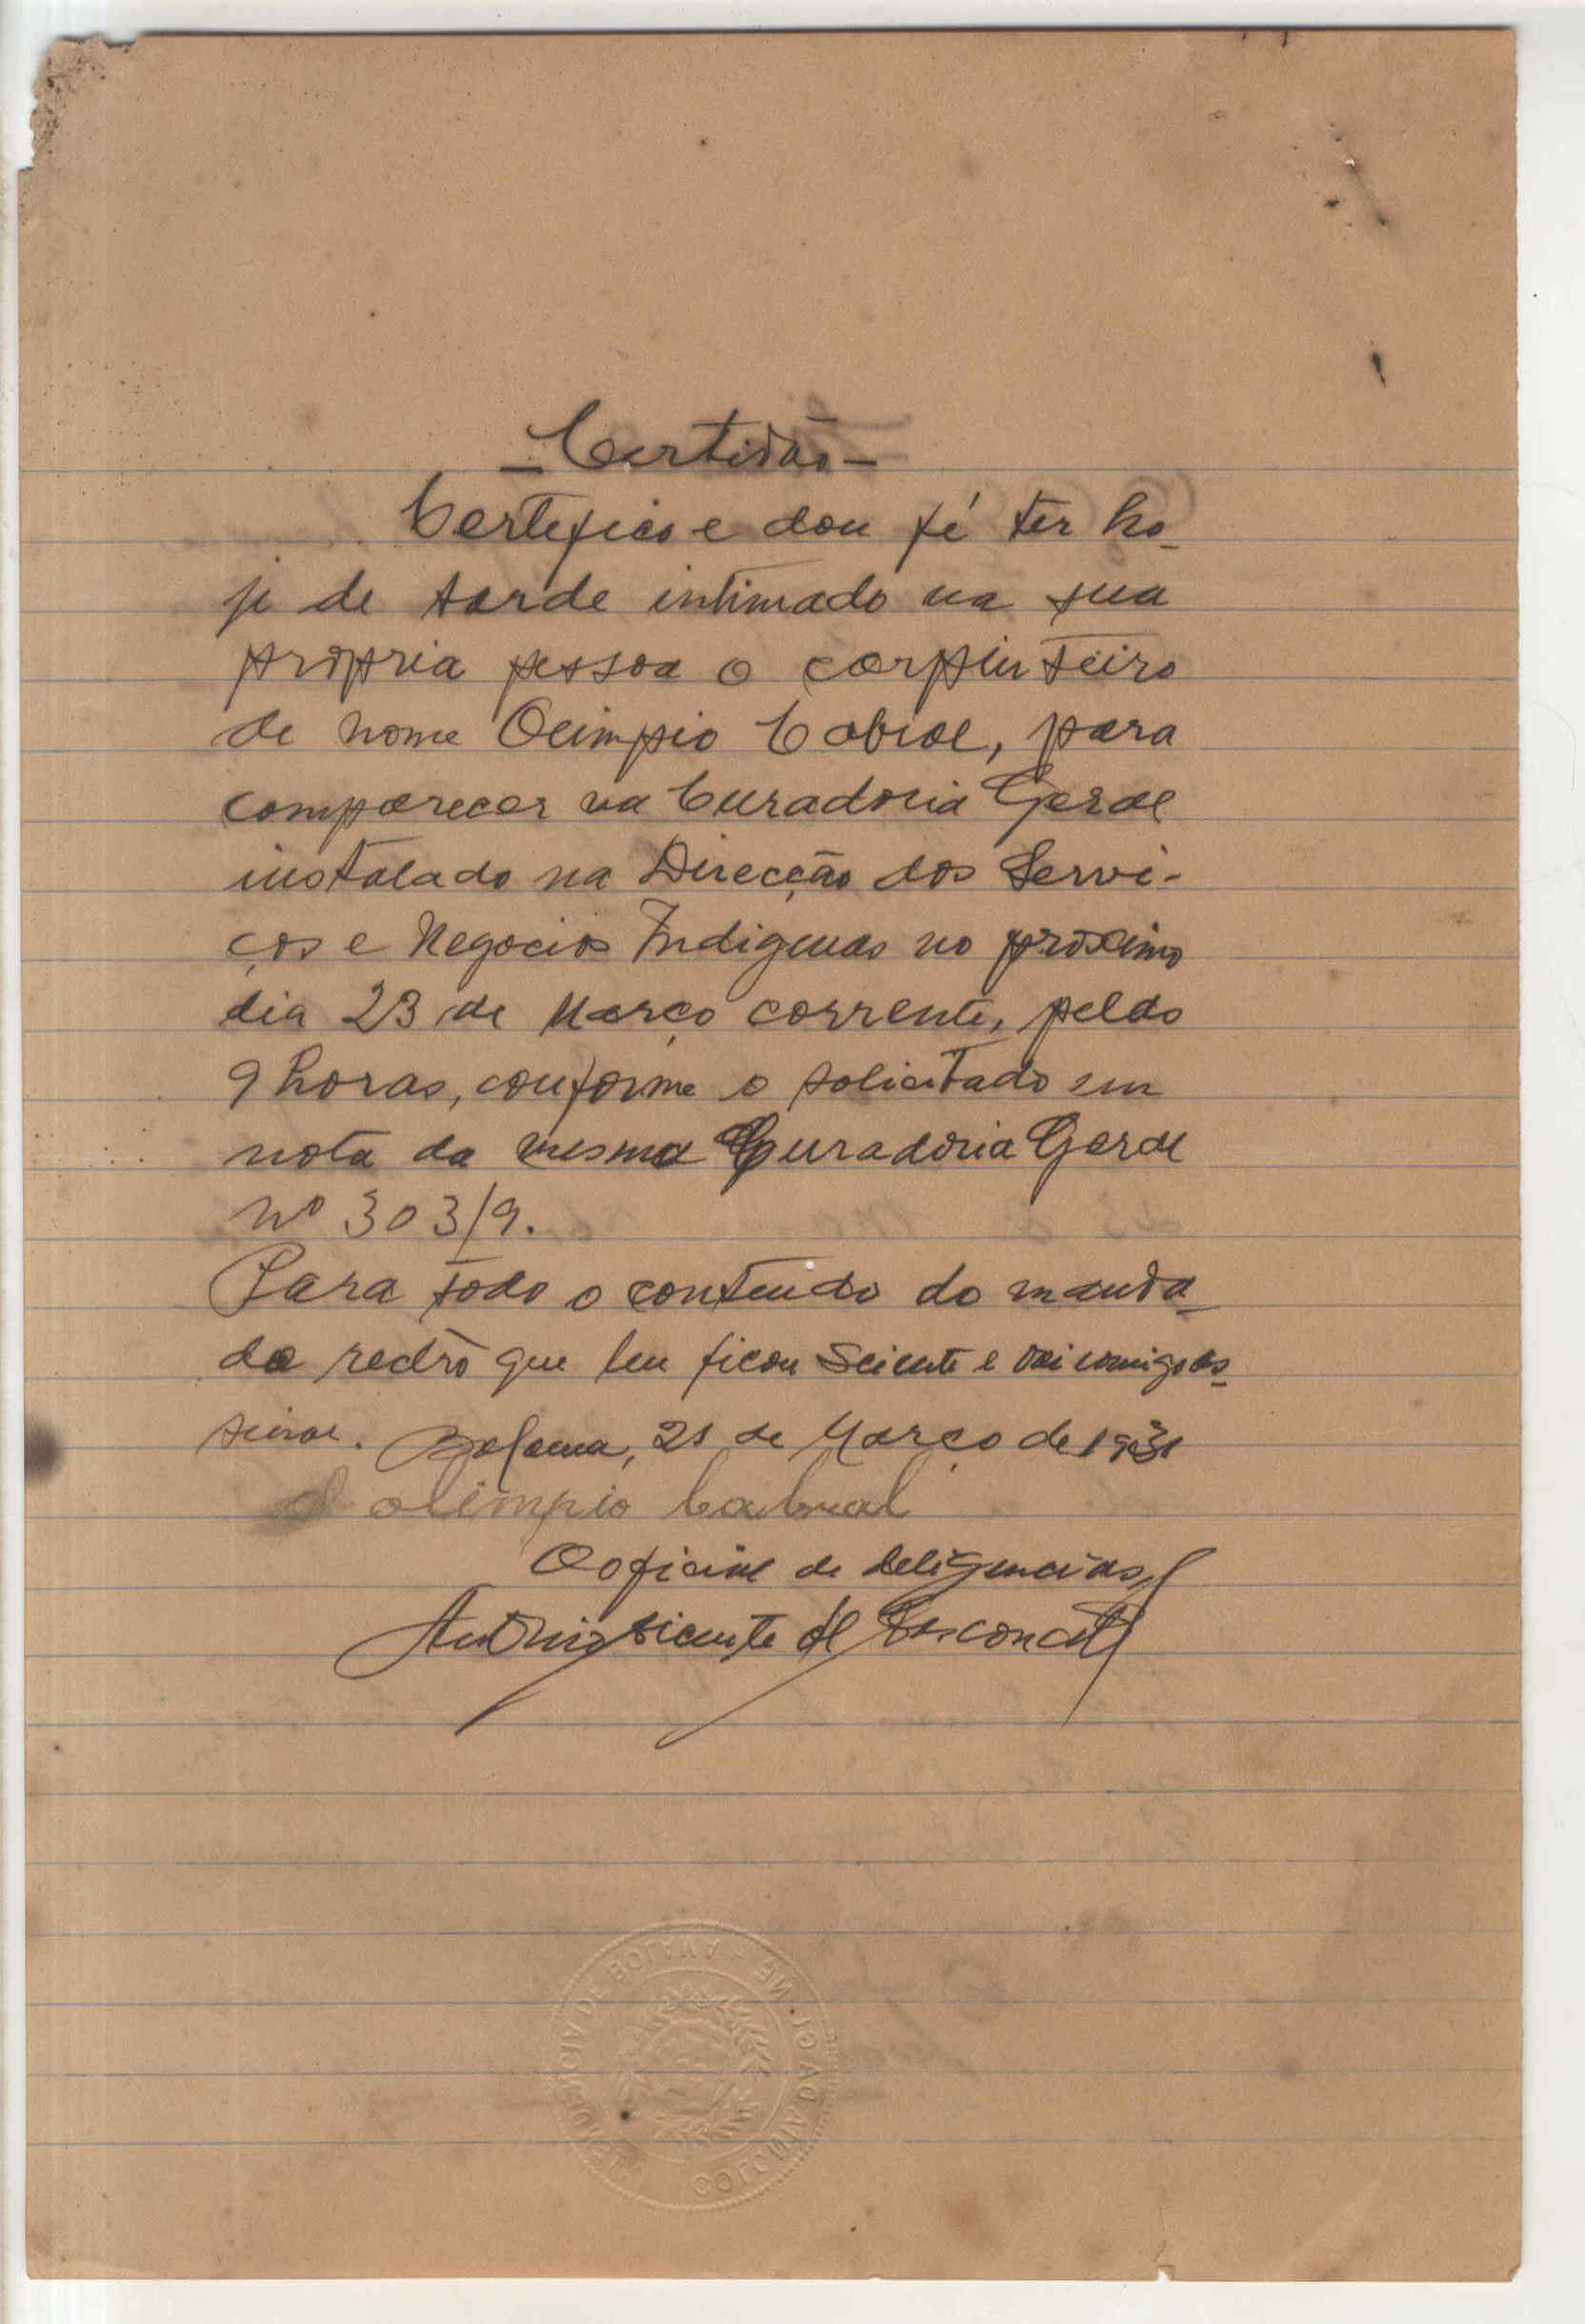 - Certidão -
Certefico e dou fé ter ho-
je de tarde intimado na sua
propria pessoa o carpinteiro
de nome Olimpio Cabral, para
comparecer na Curadoria Geral
instalado na Direcção dos Servi-
ços e Negocios Indigenas no proximo
dia 23 de Março corrente, pelas
9 horas, conforme o solicitado em
nota da mesma Curadoria Geral
nº 303/9.
Para todo o conteudo do manda-
do retrò que leu ficou sciente e vai comigo as-
sinar. Bolama, 21 de Março de 1931
olimpio Cabral
O oficial de deligencias,
Antonio Vicente de Vasconcelos
COLONIA DA GUINÉ
DE BOLAMA